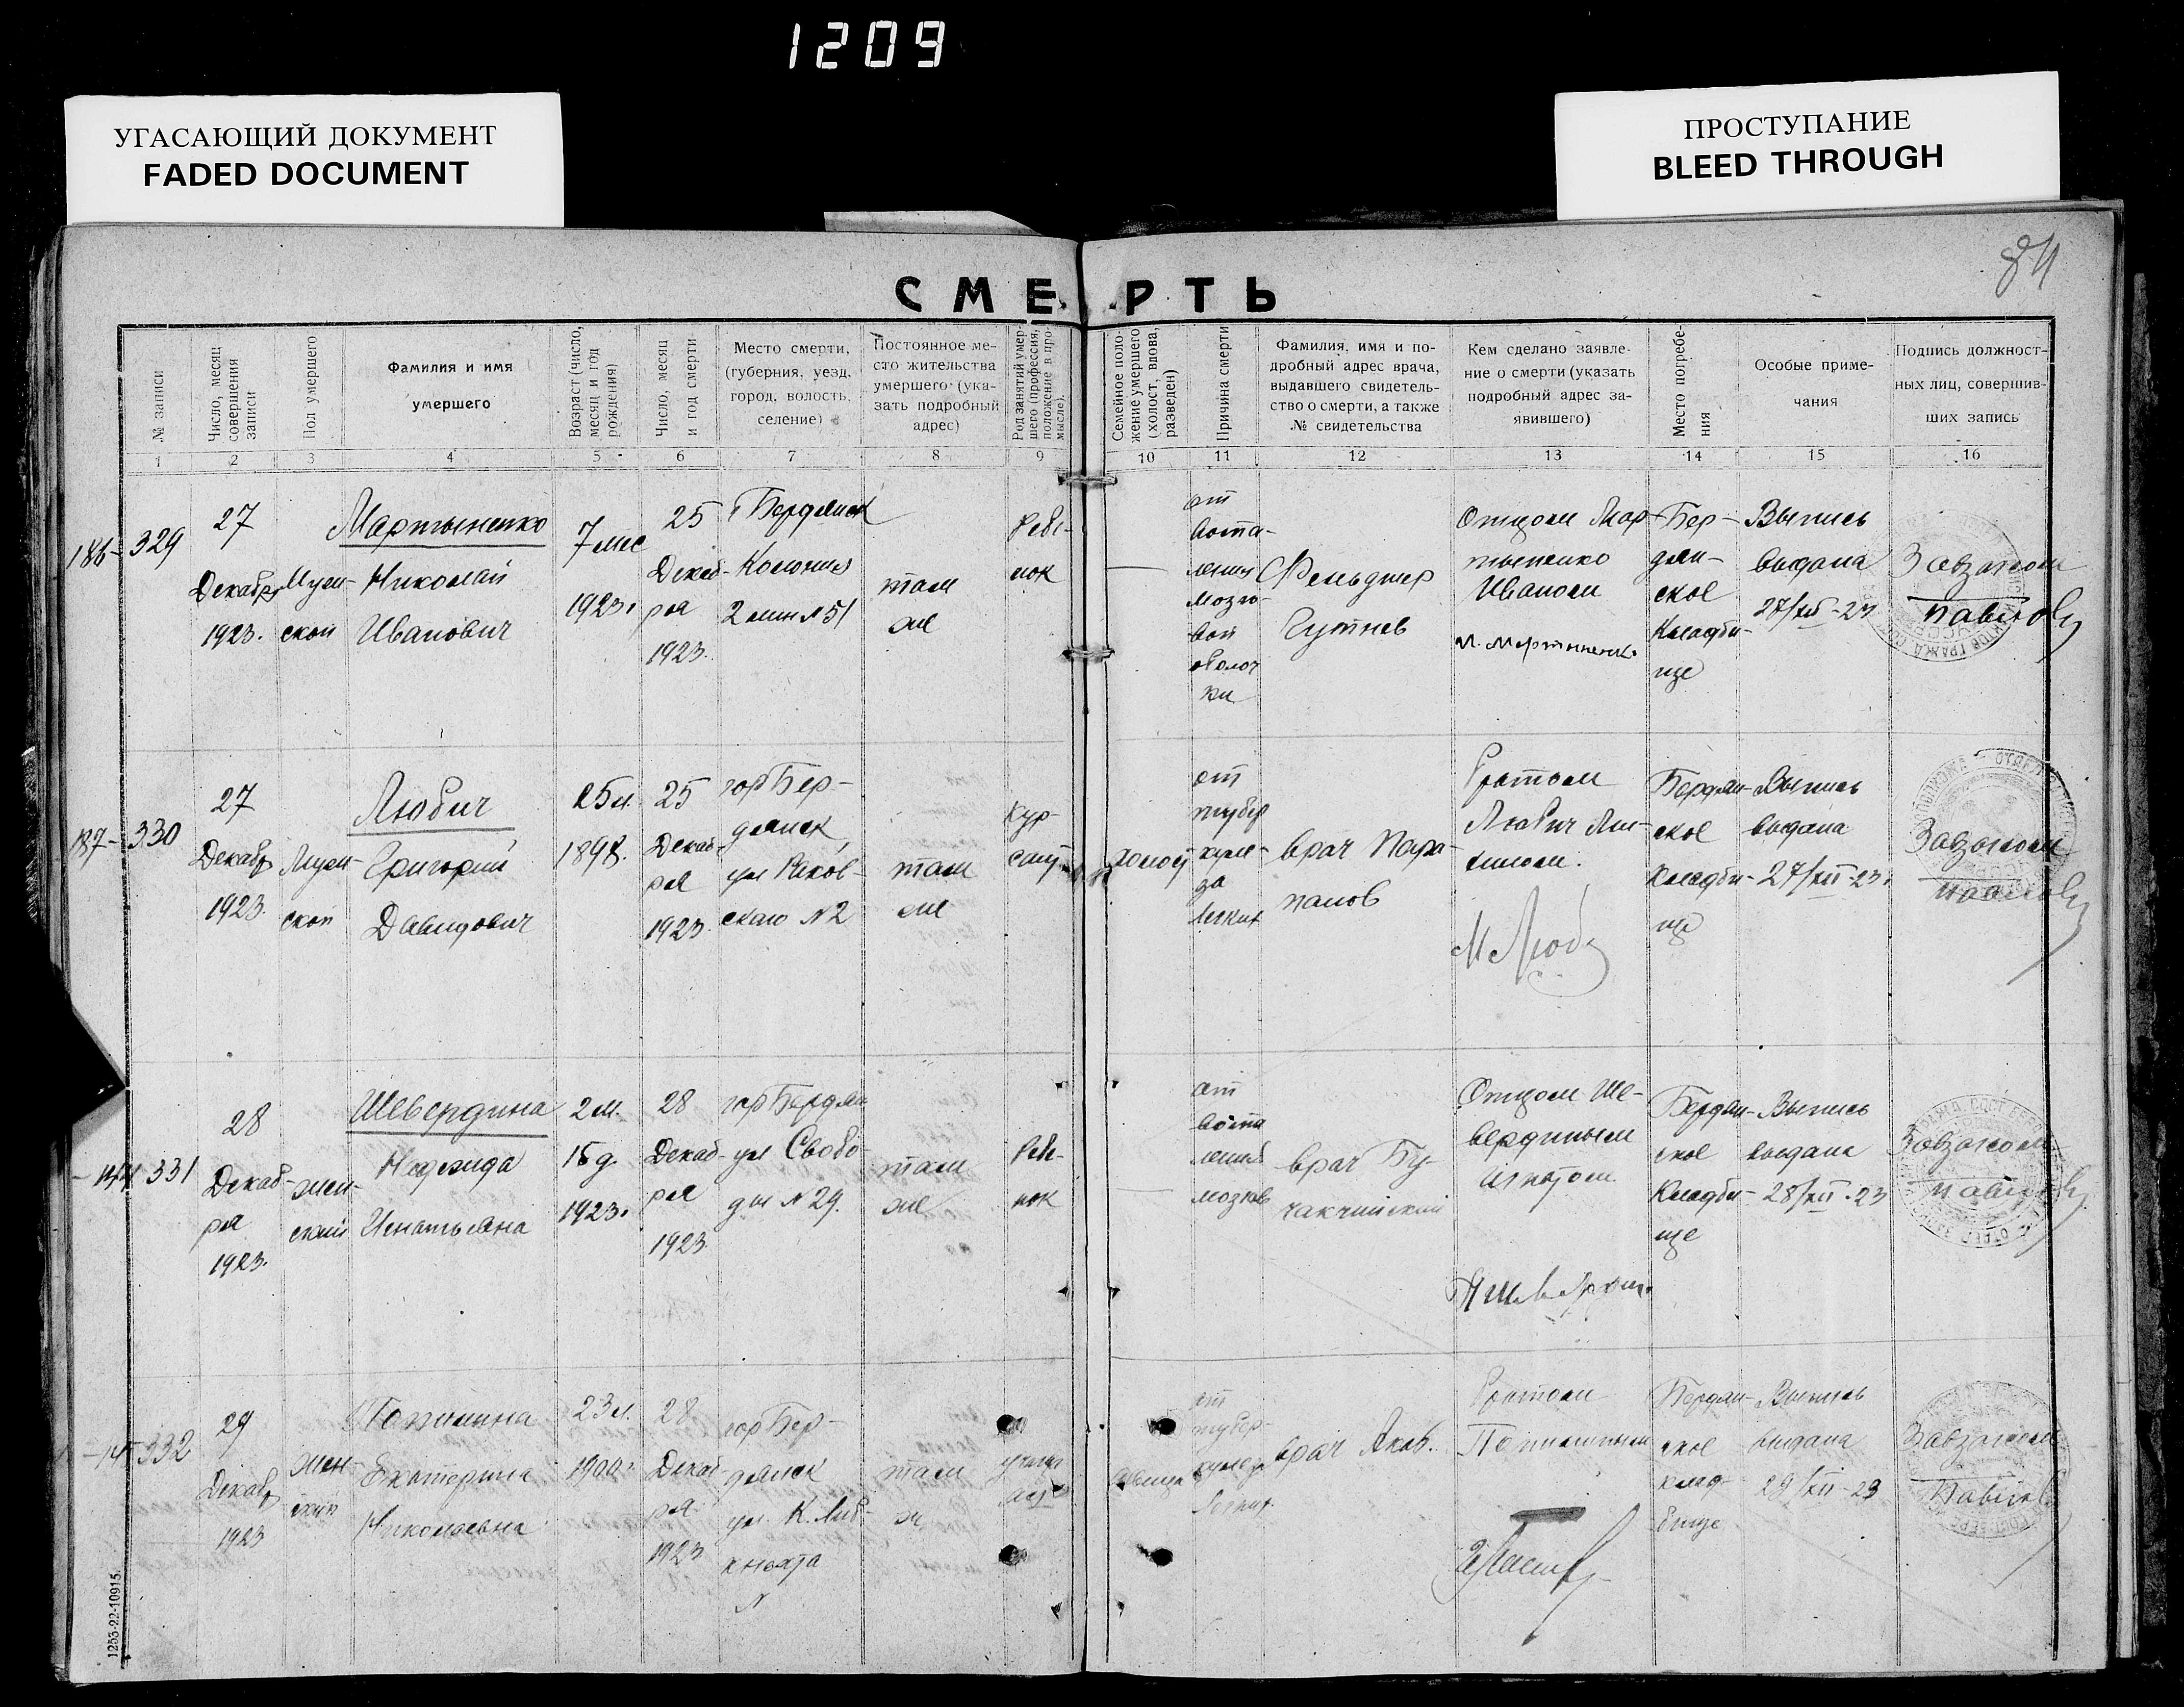 1209
УГАСАЮЩИЙ ДОКУМЕНТ
FADED DOCUMENT
ПРОСТУПАНИЕ
BLEED THROUGH
84
СМЕРТЬ
№ записи
Число, месяц совершения записи
Пол умершего
Фамилия и имя умершего
Возраст (число, месяц и год рождения)
Число, месяц и год смерти
Место смерти, (губерния, уезд, город, волость, селение)
Постоянное место жительства умершего (указать подробный адрес)
Род занятий умершего (профессия, положение в промысле).
Семейное положение умершего (холост, вдова, разведен)
Причина смерти
Фамилия, имя и подробный адрес врача, выдавшего свидетельство о смерти, а также № свидетельства
Кем сделано заявление о смерти (указать подробный адрес заявившего)
Место погребения
Особые примечания
Подпись должностных лиц, совершивших запись
1 2 3 4 5 6 7 8 9 10 11 12 13 14 15 16
186- 329
27
Декабр
1923.
Мужской
Мартыненко
Николай
Иванович
7 мес
1923.
25
Декабря
1923.
Бердянск
Колония
2 лин №51
там
же
Ребенок
—
от
воспаления
мозговой
оболочки
Фельдшер
Гутнев
Отцом Мартыненко
Иваном
Бердянское
Кладбище
Выпись
выдана
27/XII-23
Завзагсом
Павлов
187- 330
27
Декабр
1923.
Мужской
Любич
Григорий
Давидович
25 л.
1898.
25
Декабря
1923.
гор Бердянск
ул Раковскаго №2
там
же
холост
от
туберкулеза
легких
врач
Братом
Любич
М Люб
Бердянское
Кладбище
Выпись
выдана
27/XII-23.
Завзагсом
Павлов
331
28
Декабря
1923.
женский
Шевердина
Надежда
Игнатьевна
2 м.
15 д.
1923.
28
Декабря
1923.
гор Бердян
ул Свободы №29.
там
же
Ребенок
—
от
воспаления
мозгов
врач
Отцом Шевердиным
Игнатом
Бердянское
Кладбище
Выпись
выдана
28/XII-23
Завзагсом
Павлов
332
29
Декабр
1923
женский
Екатерина
Николаевна
23 л.
1900.
28
Декабря
1923
гор Бердянск
ул. К. Либкнехта
№
там
же
от
туберкулеза
легких
врач Яков.
Братом
Бердянское
кладбище
Выпись
выдана
29/XII-23
Завзагсом
Павлов
1253-22-10915.